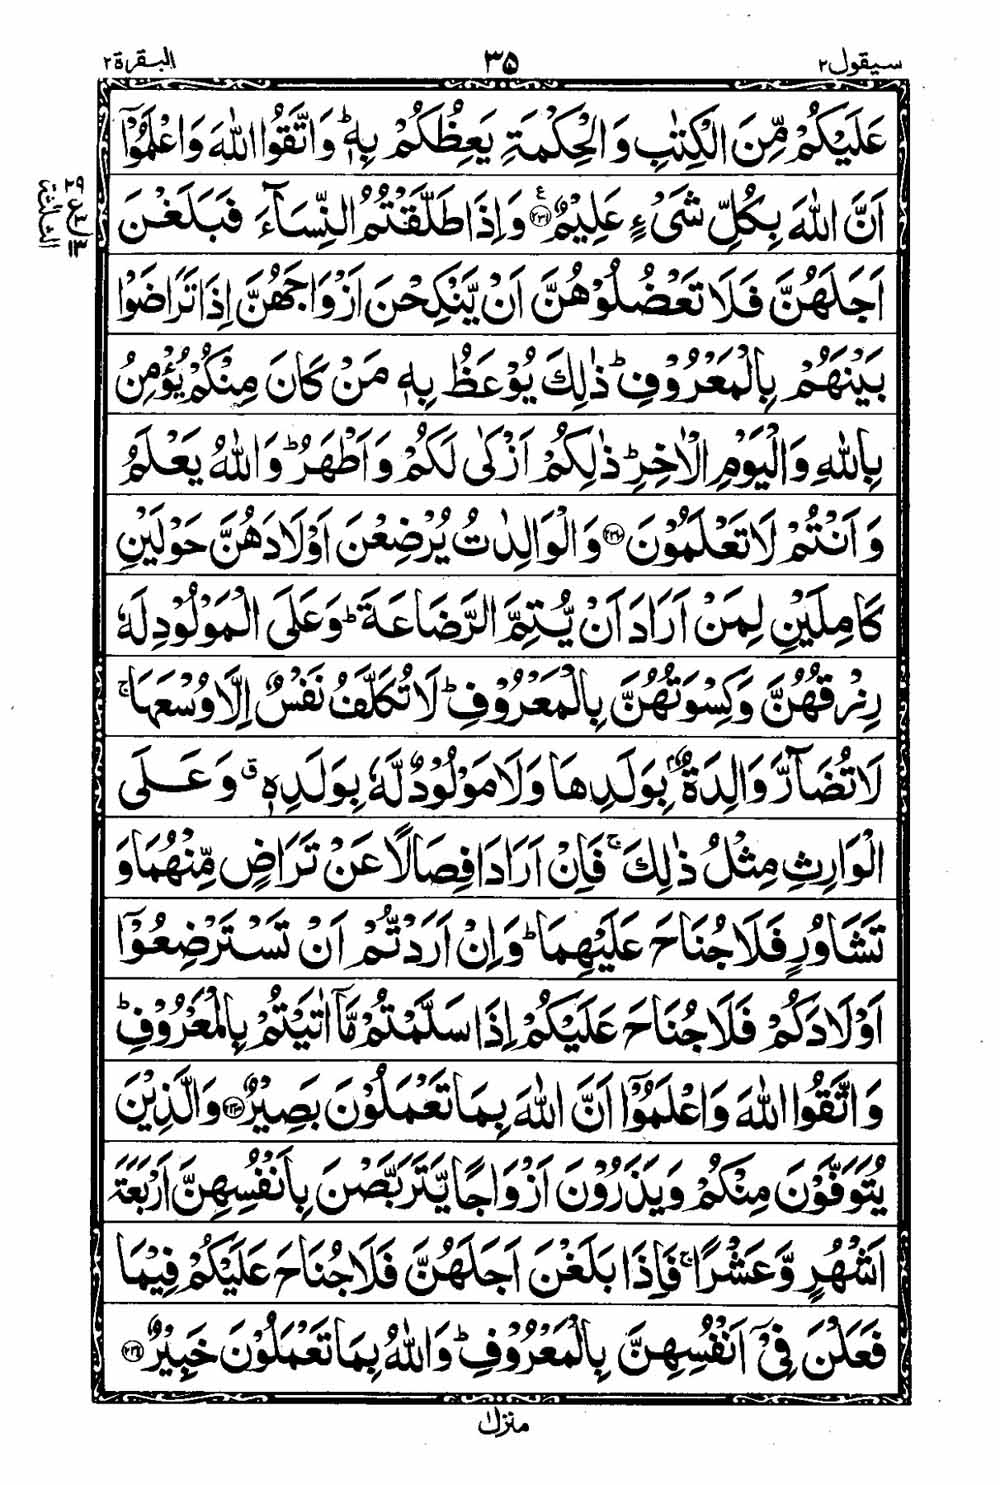 سيقول ٢
٣۵
البقرة ٢
عَلَيْكُمْ مِّنَ الْكِتٰبِ وَالْحِكْمَةِ يَعِظُكُمْ بِهٖ ؕ وَاتَّقُوا اللّٰهَ وَاعْلَمُوْۤا
اَنَّ اللّٰهَ بِكُلِّ شَیْءٍ عَلِيْمٌ ﴿۲۳۱﴾ ع وَاِذَا طَلَّقْتُمُ النِّسَآءَ فَبَلَغْنَ
اَجَلَهُنَّ فَلَا تَعْضُلُوْهُنَّ اَنْ يَّنْكِحْنَ اَزْوَاجَهُنَّ اِذَا تَرَاضَوْا
بَيْنَهُمْ بِالْمَعْرُوْفِ ؕ ذٰلِكَ يُوْعَظُ بِهٖ مَنْ كَانَ مِنْكُمْ يُؤْمِنُ
بِاللّٰهِ وَالْيَوْمِ الْاٰخِرِ ؕ ذٰلِكُمْ اَزْكٰى لَكُمْ وَاَطْهَرُ ؕ وَاللّٰهُ يَعْلَمُ
وَاَنْتُمْ لَا تَعْلَمُوْنَ ﴿۲۳۲﴾ وَالْوَالِدٰتُ يُرْضِعْنَ اَوْلَادَهُنَّ حَوْلَيْنِ
كَامِلَيْنِ لِمَنْ اَرَادَ اَنْ يُّتِمَّ الرَّضَاعَةَ ؕ وَعَلَى الْمَوْلُوْدِ لَهٗ
رِزْقُهُنَّ وَكِسْوَتُهُنَّ بِالْمَعْرُوْفِ ؕ لَا تُكَلَّفُ نَفْسٌ اِلَّا وُسْعَهَا ۚ
لَا تُضَآرَّ وَالِدَةٌۢ بِوَلَدِهَا وَلَا مَوْلُوْدٌ لَّهٗ بِوَلَدِهٖ ق وَعَلَى
الْوَارِثِ مِثْلُ ذٰلِكَ ۚ فَاِنْ اَرَادَا فِصَالًا عَنْ تَرَاضٍ مِّنْهُمَا وَ
تَشَاوُرٍ فَلَا جُنَاحَ عَلَيْهِمَا ؕ وَاِنْ اَرَدْتُّمْ اَنْ تَسْتَرْضِعُوْۤا
اَوْلَادَكُمْ فَلَا جُنَاحَ عَلَيْكُمْ اِذَا سَلَّمْتُمْ مَّاۤ اٰتَيْتُمْ بِالْمَعْرُوْفِ ؕ
وَاتَّقُوا اللّٰهَ وَاعْلَمُوْۤا اَنَّ اللّٰهَ بِمَا تَعْمَلُوْنَ بَصِيْرٌ ﴿۲۳۳﴾ وَالَّذِيْنَ
يُتَوَفَّوْنَ مِنْكُمْ وَيَذَرُوْنَ اَزْوَاجًا يَّتَرَبَّصْنَ بِاَنْفُسِهِنَّ اَرْبَعَةَ
اَشْهُرٍ وَّعَشْرًا ۚ فَاِذَا بَلَغْنَ اَجَلَهُنَّ فَلَا جُنَاحَ عَلَيْكُمْ فِيْمَا
فَعَلْنَ فِيْۤ اَنْفُسِهِنَّ بِالْمَعْرُوْفِ ؕ وَاللّٰهُ بِمَا تَعْمَلُوْنَ خَبِيْرٌ ﴿۲۳۴﴾
منزل ١